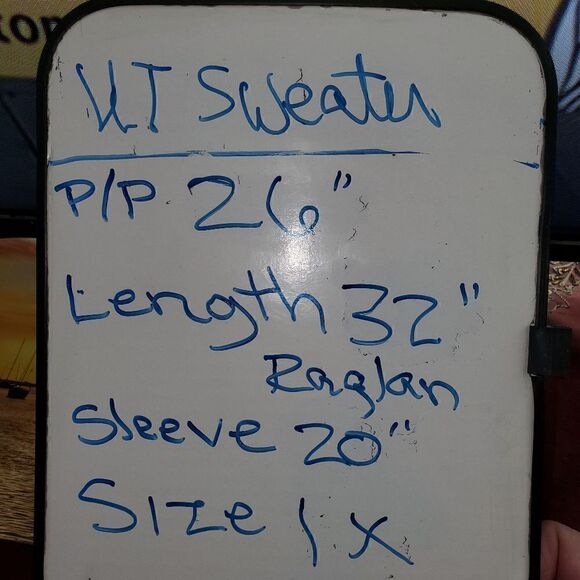 Sweater
P/P 26"
Length 32"
Raglan
Sleeve 20"
Size 1X